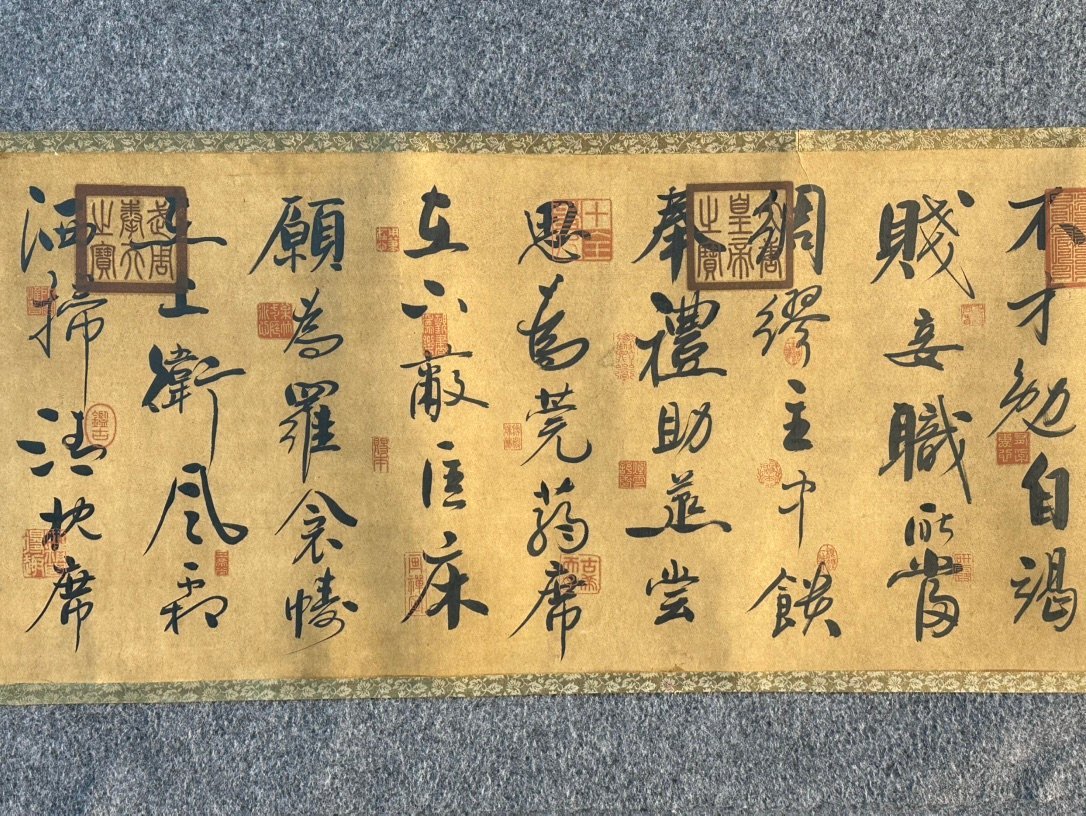 不才勉自竭
賤妾職所當
綢繆主中饋
奉禮助蒸嘗
思為莞蒻席
在下蔽匡床
願為羅衾幬
在上衛風霜
洒掃清枕席
鑑古